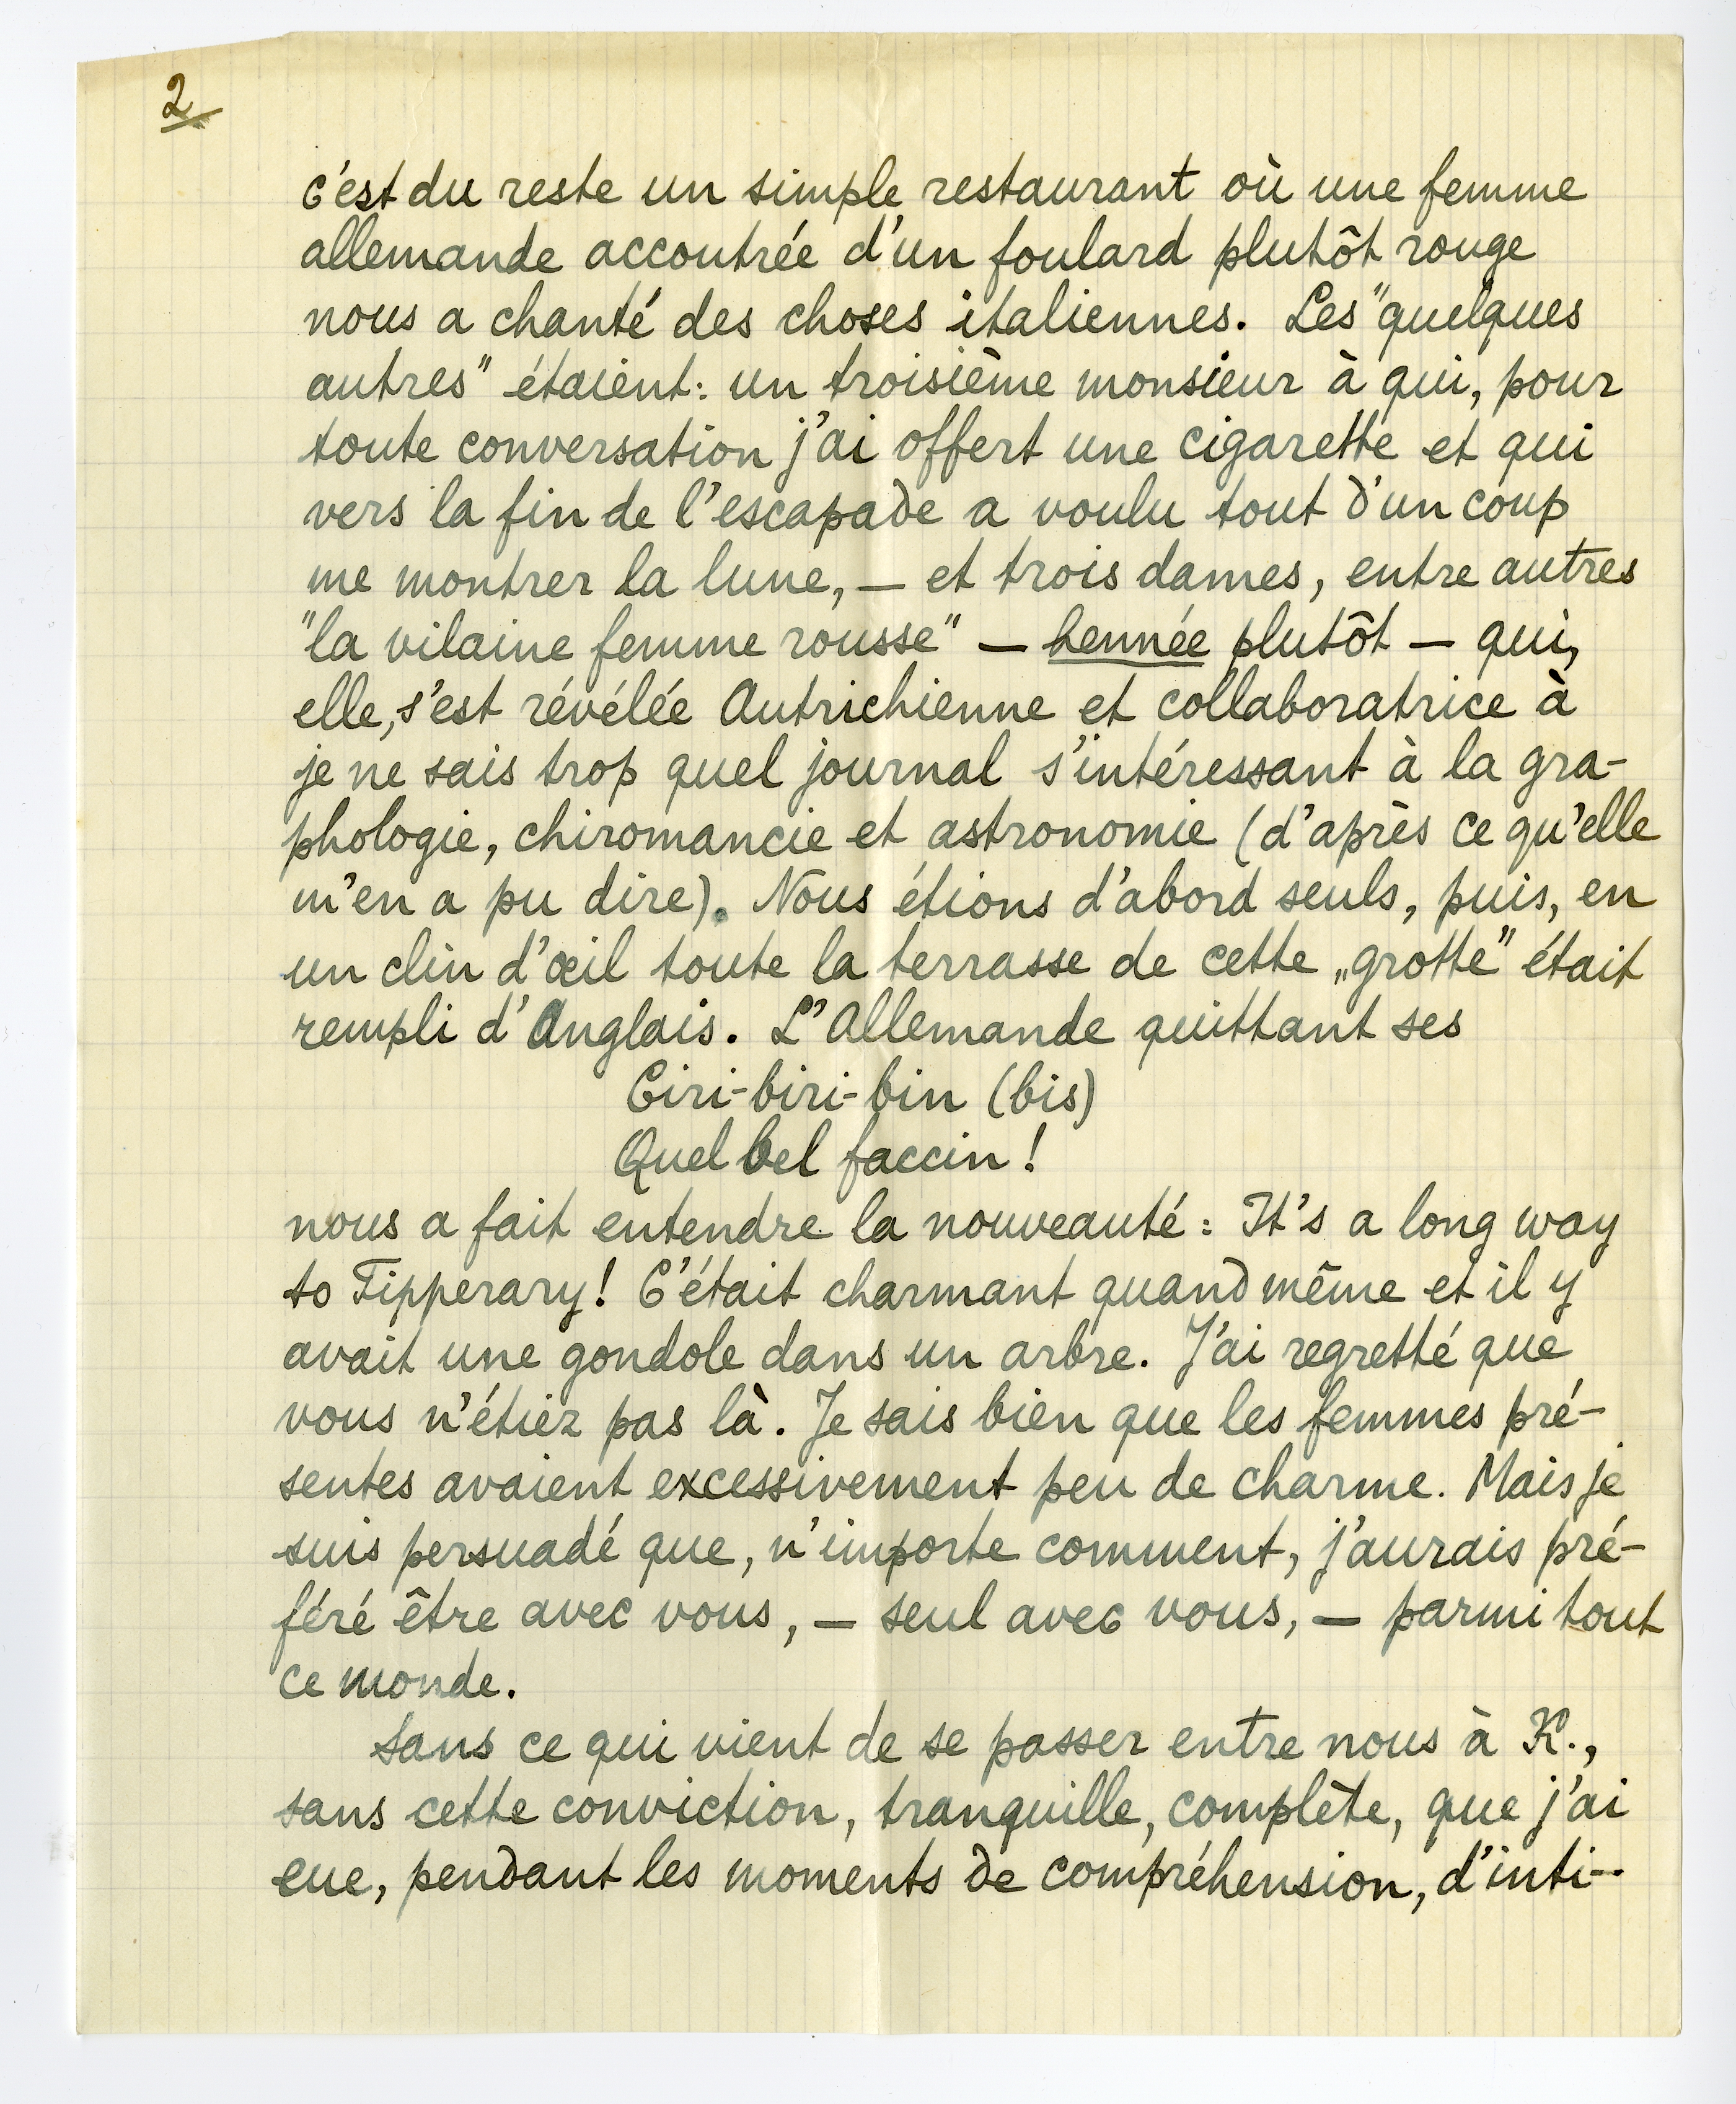 2
c'est du reste un simple restaurant où une femme
allemande accoutrée d'un foulard plutôt rouge
nous a chanté des choses italiennes. Les "quelques
autres" étaient: un troisième monsieur à qui, pour
toute conversation j'ai offert une cigarette et qui
vers la fin de l'escapade a voulu tout d'un coup
me montrer la lune, — et trois dames, entre autres
"la vilaine femme rousse" — hennée plutôt — qui,
elle, s'est révélée Autrichienne et collaboratrice à
je ne sais trop quel journal s'intéressant à la gra-
phologie, chiromancie et astronomie (d'après ce qu'elle
m'en a pu dire). Nous étions d'abord seuls, puis, en
un clin d'œil toute la terrasse de cette „grotte" était
rempli d'Anglais. L'Allemande quittant ses
Ciri-biri-bin (bis)
Quel bel faccin!
nous a fait entendre la nouveauté: It's a long way
to Tipperary! C'était charmant quand même et il y
avait une gondole dans un arbre. J'ai regretté que
vous n'étiez pas là. Je sais bien que les femmes pré-
sentes avaient excessivement peu de charme. Mais je
suis persuadé que, n'importe comment, j'aurais pré-
féré être avec vous, — seul avec vous, — parmi tout
ce monde.
Sans ce qui vient de se passer entre nous à K.,
sans cette conviction, tranquille, complète, que j'ai
eue, pendant les moments de compréhension, d'inti-